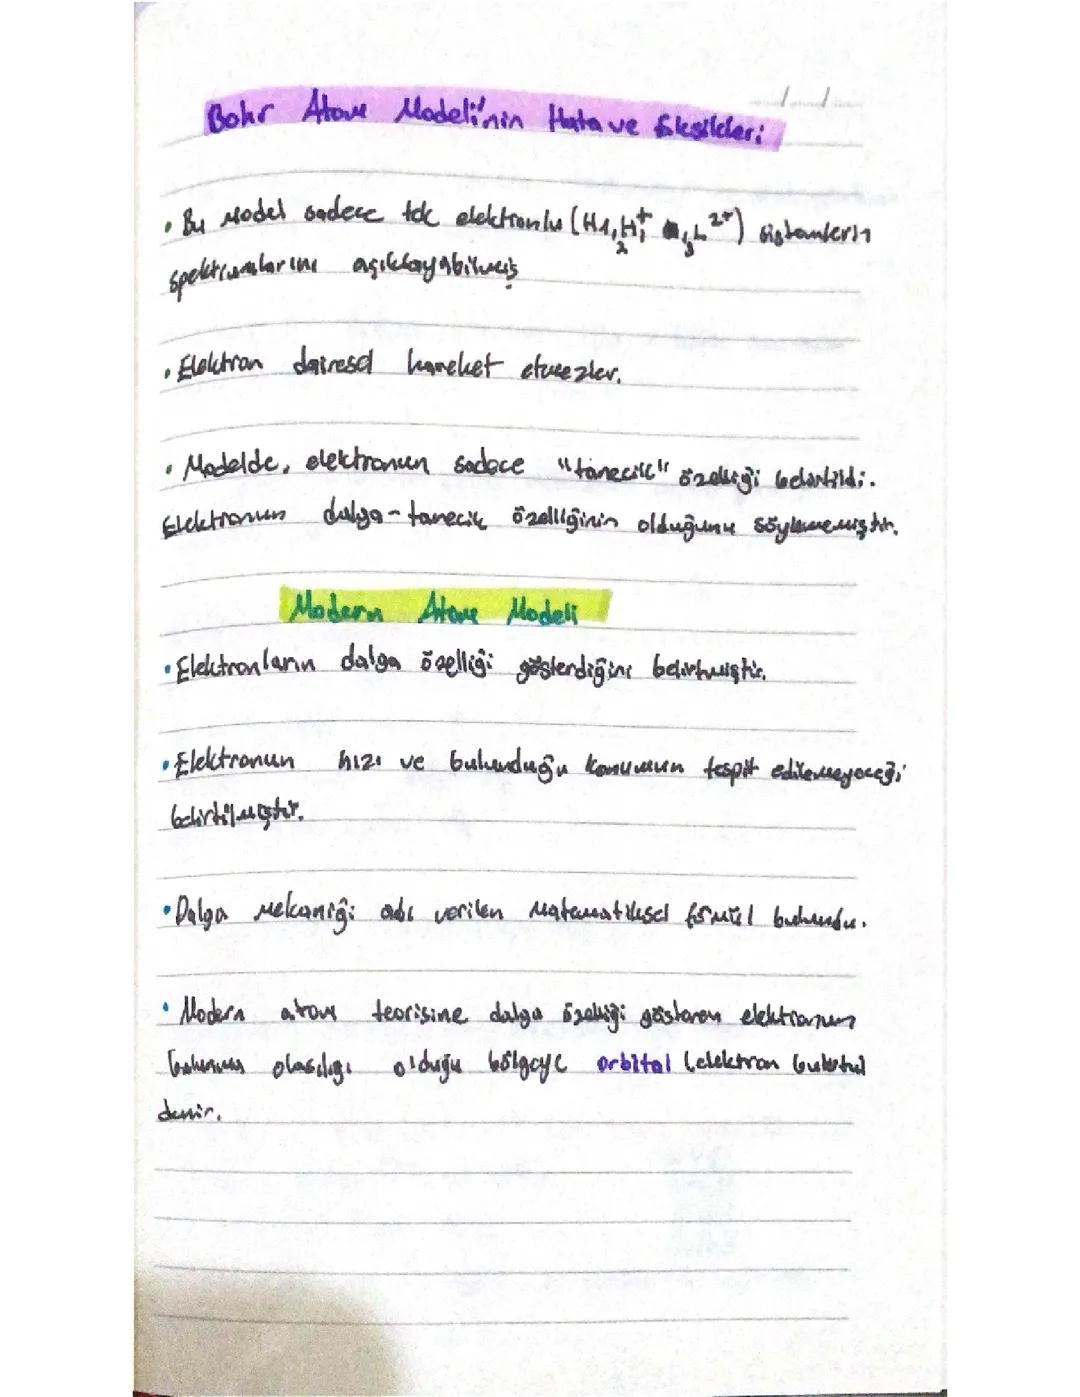 Bohr Atom Modeli'nin Hata ve Eksikleri
• Bu Model sadece tek elektronlu (H1, 2H+, 3L 2+) sistemlerin
spektrumlarını açıklayabilmiş
• Elektron dairesel hareket etmezler.
• Modelde, elektronun sadece "tanecik" özelliği belirtildi.
Elektronun dalga-tanecik özelliğinin olduğunu söylememiştir.
Modern Atom Modeli
• Elektronların dalga özelliği gösterdiğini belirtmiştir.
• Elektronun hızı ve bulunduğu konumun tespit edilemeyeceği
belirtilmiştir.
• Dalga mekaniği adı verilen matematiksel formül bulundu.
• Modern atom teorisine dalga özelliği gösteren elektronun
bulunma olasılığı olduğu bölgeye orbital (elektron bulutu)
denir.